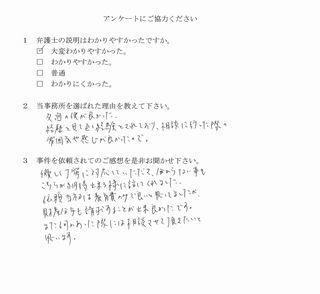 アンケートにご協力ください
1 弁護士の説明はわかりやすかったですか。
☑ 大変わかりやすかった。
□ わかりやすかった。
□ 普通
□ わかりにくかった。
2 当事務所を選ばれた理由を教えて下さい。
が良かった。
経歴を見ても経験をされており、相談に行った際の
雰囲気や感じが良かったので。
3 事件を依頼されてのご感想を是非お聞かせ下さい。
優しく丁寧に対応していただいて、分からない事も
こちらが納得出来る様に話してくれました。
依頼当初は養育費のみで良いと思いましたが、
財産分与も請求することが出来良かったです。
また何かあった際には相談させて頂きたいと
思います。